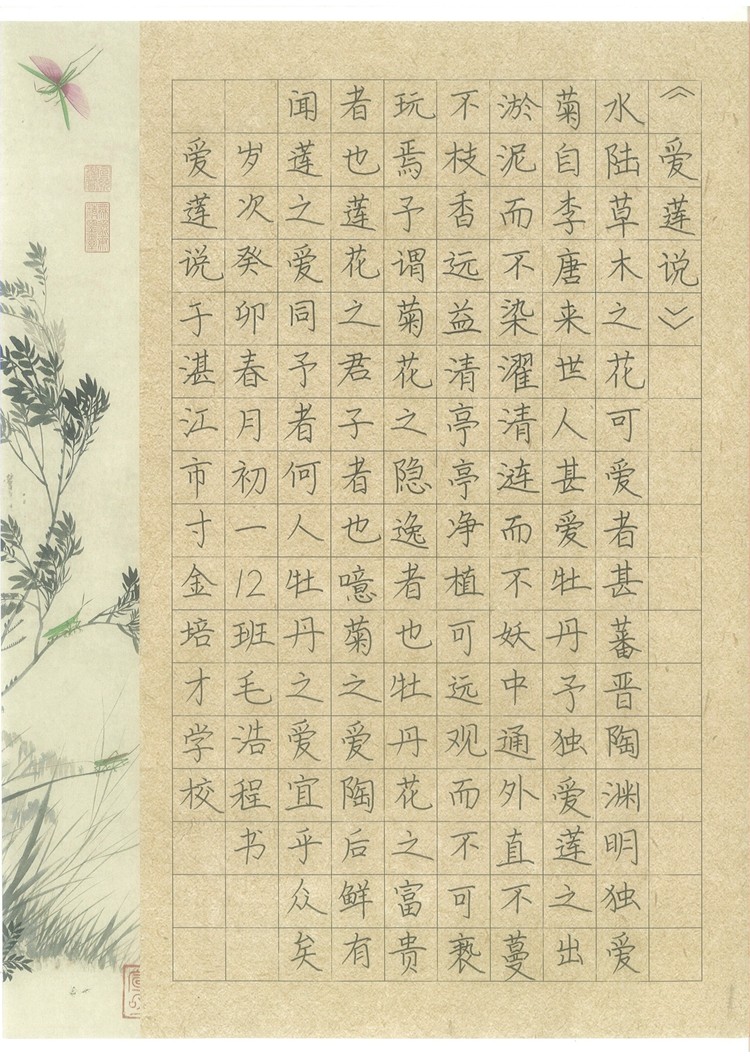 《爱莲说》
水陆草木之花可爱者甚蕃晋陶渊明独爱
菊自李唐来世人甚爱牡丹予独爱莲之出
淤泥而不染濯清涟而不妖中通外直不蔓
不枝香远益清亭亭净植可远观而不可亵
玩焉予谓菊花之隐逸者也牡丹花之富贵
者也莲花之君子者也噫菊之爱陶后鲜有
闻莲之爱同予者何人牡丹之爱宜乎众矣
岁次癸卯春月初一12班毛浩程书
爱莲说于湛江市寸金培才学校